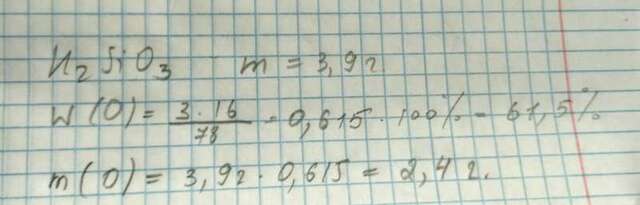 H₂SiO₃ m = 3,9г.
W(O) = 3·16/78 = 0,615 · 100% = 61,5%
m(O) = 3,9г · 0,615 = 2,4г.